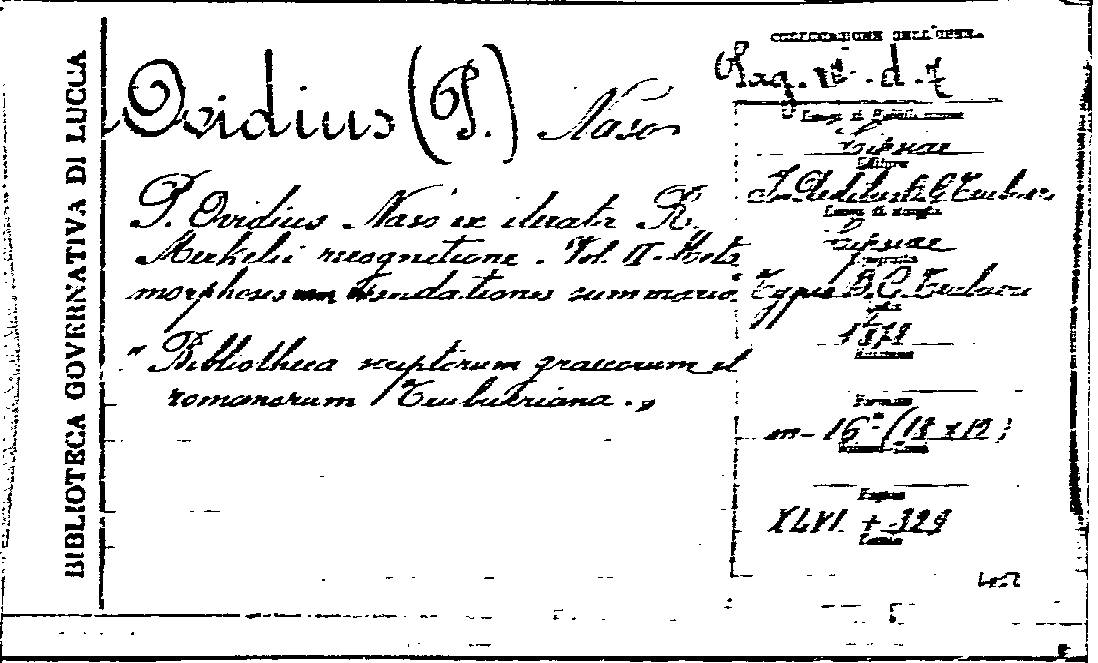 BIBLIOTECA GOVERNATIVA DI LUCCA
Ovidius (P.) Naso
P. Ovidius Naso ex iterata R.
Merkelii recognitione. Vol. II - Meta
morphoses cum emendationis summario
" Bibliotheca scriptorum graecorum et
romanorum Teubneriana. "
COLLOCAZIONE DELL'OPERA
d. 7
Luogo di Pubblicazione
Lipsiae
Editore
Teubneri
Luogo di stampa
Lipsiae
Typis B. G. Teubneri
Formato
in- 16° (18 x 12)
Pagine
XLVI + 329